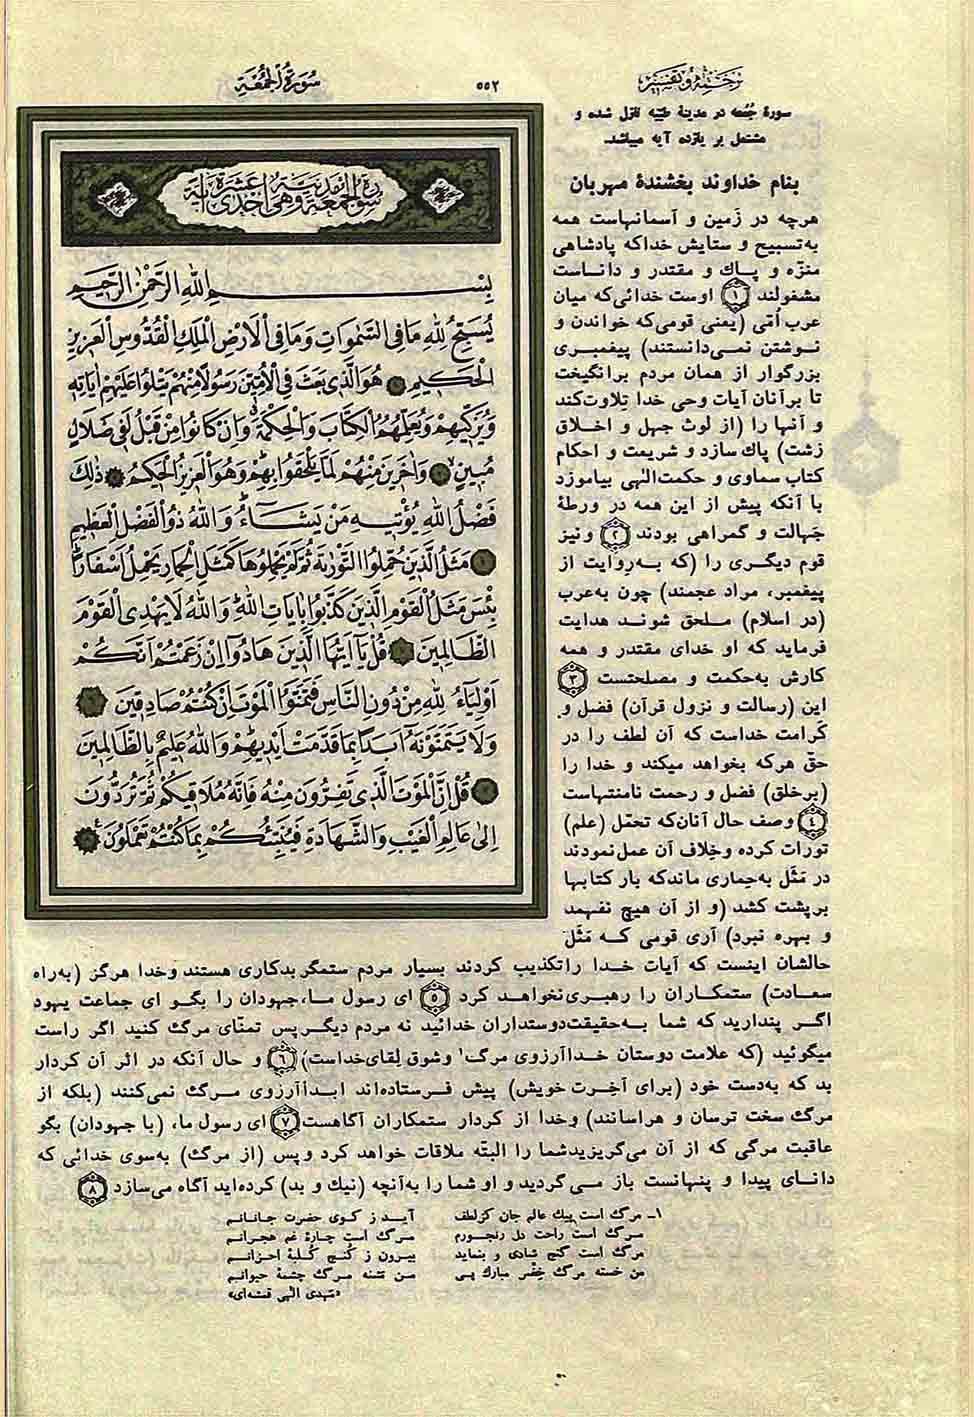 ترجمه و تفسیر
۵۵۲
سُورَةُ الْجُمُعَةِ
سورهٔ جُمُعه در مدینهٔ طیّبه نازل شده و
مشتمل بر یازده آیه میباشد.
بنام خداوند بخشندهٔ مهربان
هرچه در زَمین و آسمانهاست همه
به‌تسبیح و ستایش خداکه پادشاهی
منزّه و پاك و مقتدر و داناست
مشغولند ۱ اوست خدائی‌که میان
عرب اُمّی (یعنی قومی‌که خواندن و
نوشتن نمی‌دانستند) پیغمبری
بزرگوار از همان مردم برانگیخت
تا برآنان آیات وحی خدا تِلاوت‌کند
و آنها را (از لوث جهل و اخلاق
زشت) پاك سازد و شریعت و احکام
کتاب سماوی و حکمت‌الٰهی بیاموزد
با آنکه پیش از این همه در ورطهٔ
جَهالت و گمراهی بودند ۲ و نیز
قوم دیگری را (که به‌روایت از
پیغمبر، مراد عجمند) چون به‌عرب
(در اسلام) ملحق شوند هدایت
فرماید که او خدای مقتدر و همه
کارش به‌حکمت و مصلحتست ۳
این (رسالت و نزول قرآن) فضل و
کَرامت خداست که آن لطف را در
حقّ هرکه بخواهد میکند و خدا را
(برخلق) فضل و رحمت نامنتهاست
۴ وصف حال آنان‌که تحمّل (علم)
تورات کرده وخِلاف آن عمل‌نمودند
در مَثَل به‌حِماری ماندکه بار کتابها
برپشت کشد (و از آن هیچ نفهمد
و بهره نبرد) آری قومی که مَثَل
حالشان اینست که آیات خدا راتکذیب کردند بسیار مردم ستمگر بدکاری هستند وخدا هرگز (به‌راه
سعادت) ستمکاران را رهبری‌نخواهد کرد ۵ ای رسول ما، جهودان را بگو ای جماعت یهود
اگر پندارید که شما به‌حقیقت‌دوستداران خدائید نه مردم دیگرپس تمنّای مرگ کنید اگر راست
میگوئید (که علامت دوستان خداآرزوی مرگ۱ وشوق لِقای‌خداست) ۶ و حال آنکه در اثر آن کردار
بد که به‌دست خود (برای آخِرت خویش) پیش فرستاده‌اند ابداآرزوی مرگ نمی‌کنند (بلکه از
مرگ سخت ترسان و هراسانند) وخدا از کردار ستمکاران آگاهست ۷ ای رسول ما، (با جهودان) بگو
عاقبت مرگی که از آن می‌گریزیدشما را البتّه ملاقات خواهد کرد وپس (از مرگ) به‌سوی خدائی که
دانای پیدا و پنهانست باز می‌گردید و او شما را به‌آنچه (نیك و بد) کرده‌اید آگاه می‌سازد ۸
سورة الجمعة مدنیة وهی احدی عشرة ایة
بِسْمِ اللهِ الرَّحْمٰنِ الرَّحیمِ
یُسَبِّحُ لِلّٰهِ مَا فِی السَّمٰوَاتِ وَمَا فِی الْاَرْضِ الْمَلِكِ الْقُدُّوسِ الْعَزیزِ
الْحَكیمِ ۱ هُوَ الَّذی بَعَثَ فِی الْاُمِّیّٖنَ رَسُولًا مِنْهُمْ یَتْلُوا عَلَیْهِمْ اٰیَاتِهِ
وَیُزَكّیهِمْ وَیُعَلِّمُهُمُ الْكِتَابَ وَالْحِكْمَةَ وَاِنْ كَانُوا مِنْ قَبْلُ لَفی ضَلَالٍ
مُبینٍ ۲ وَاٰخَرینَ مِنْهُمْ لَمَّا یَلْحَقُوا بِهِمْ وَهُوَ الْعَزیزُ الْحَكیمُ ۳ ذٰلِكَ
فَضْلُ اللهِ یُؤْتیهِ مَنْ یَشَاءُ وَاللهُ ذُو الْفَضْلِ الْعَظیمِ
۴ مَثَلُ الَّذینَ حُمِّلُوا التَّوْرٰیةَ ثُمَّ لَمْ یَحْمِلُوهَا كَمَثَلِ الْحِمَارِ یَحْمِلُ اَسْفَارًا
بِئْسَ مَثَلُ الْقَوْمِ الَّذینَ كَذَّبُوا بِاٰیَاتِ اللهِ وَاللهُ لَا یَهْدِی الْقَوْمَ
الظَّالِمینَ ۵ قُلْ یَا اَیُّهَا الَّذینَ هَادُوا اِنْ زَعَمْتُمْ اَنَّكُمْ
اَوْلِیَاءُ لِلّٰهِ مِنْ دُونِ النَّاسِ فَتَمَنَّوُا الْمَوْتَ اِنْ كُنْتُمْ صَادِقینَ ۶
وَلَا یَتَمَنَّوْنَهُ اَبَدًا بِمَا قَدَّمَتْ اَیْدیهِمْ وَاللهُ عَلیمٌ بِالظَّالِمینَ
۷ قُلْ اِنَّ الْمَوْتَ الَّذی تَفِرُّونَ مِنْهُ فَاِنَّهُ مُلَاقیكُمْ ثُمَّ تُرَدُّونَ
اِلٰى عَالِمِ الْغَیْبِ وَالشَّهَادَةِ فَیُنَبِّئُكُمْ بِمَا كُنْتُمْ تَعْمَلُونَ ۸
۱ـ مرگ است پیك عالم جان کز لطف آید ز کوی حضرت جانانم
مرگ است راحت دل رنجورم مرگ است چارهٔ غم هجرانم
مرگ است گنج شادی و بنماید بیرون ز کُنج کُلبهٔ احزانم
من خسته مرگ خِضر مبارك پی من تشنه مرگ چشمهٔ حیوانم
«مهدی الٰهی قمشه‌ای»